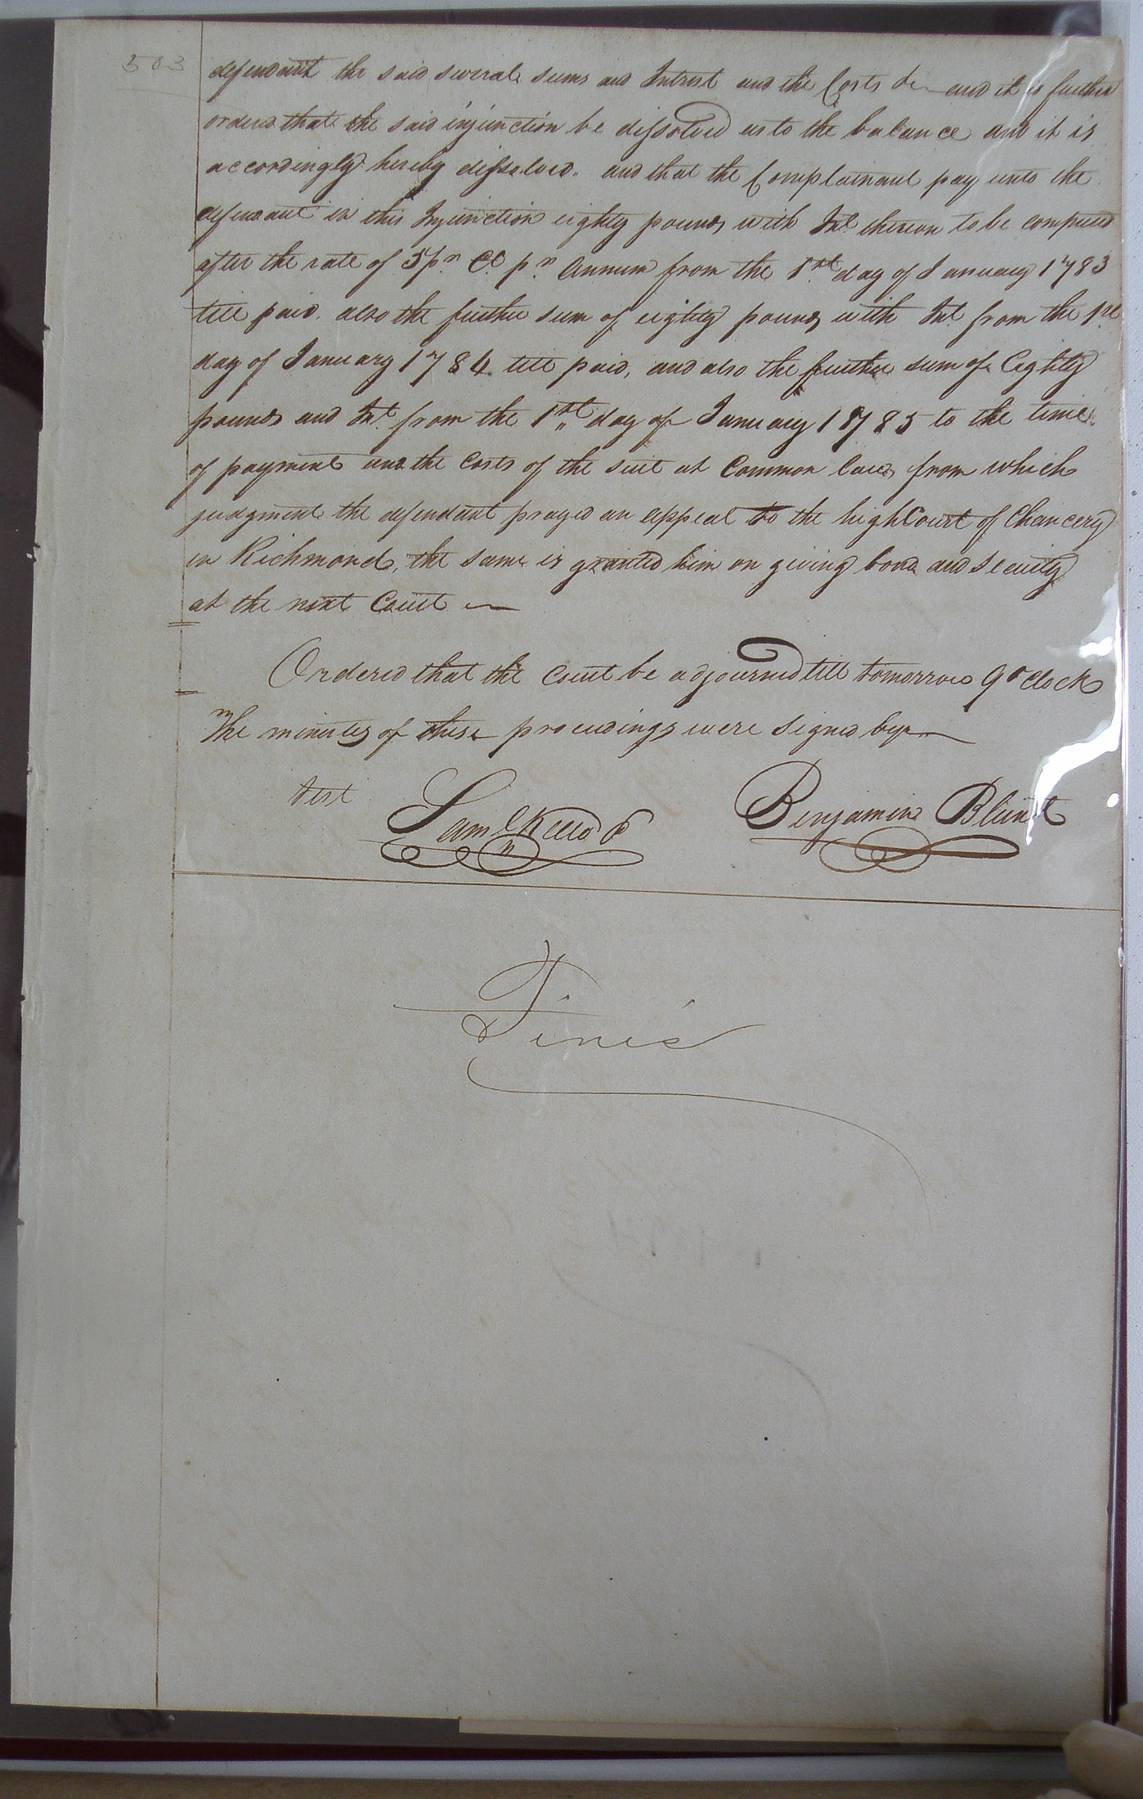 503
defendant the said several sums and Intrest and the Costs &c and it is further
orderd that the said injunction be dissolved as to the balance and it is
accordingly hereby dissolved. and that the Complainant pay unto the
defendant in this Injunction eighty pounds with Int. thereon to be computed
after the rate of 5 pr Ct pr Annum from the 1st day of January 1783
till paid. also the further sum of eighty pounds with Int. from the 1st
day of January 1784 till paid, and also the further sum of Eighty
pounds and Int. from the 1st day of January 1785 to the time
of payment and the Costs of the suit at Common law, from which
judgment the defendant prayed an appeal to the high Court of Chancery
in Richmond, the same is granted him on giving bond and security
at the next Court
Ordered that the Court be adjourned till tomorrow 9 o Clock
The minutes of these proceedings were signed by
test
Benjamin Blunt
Finis